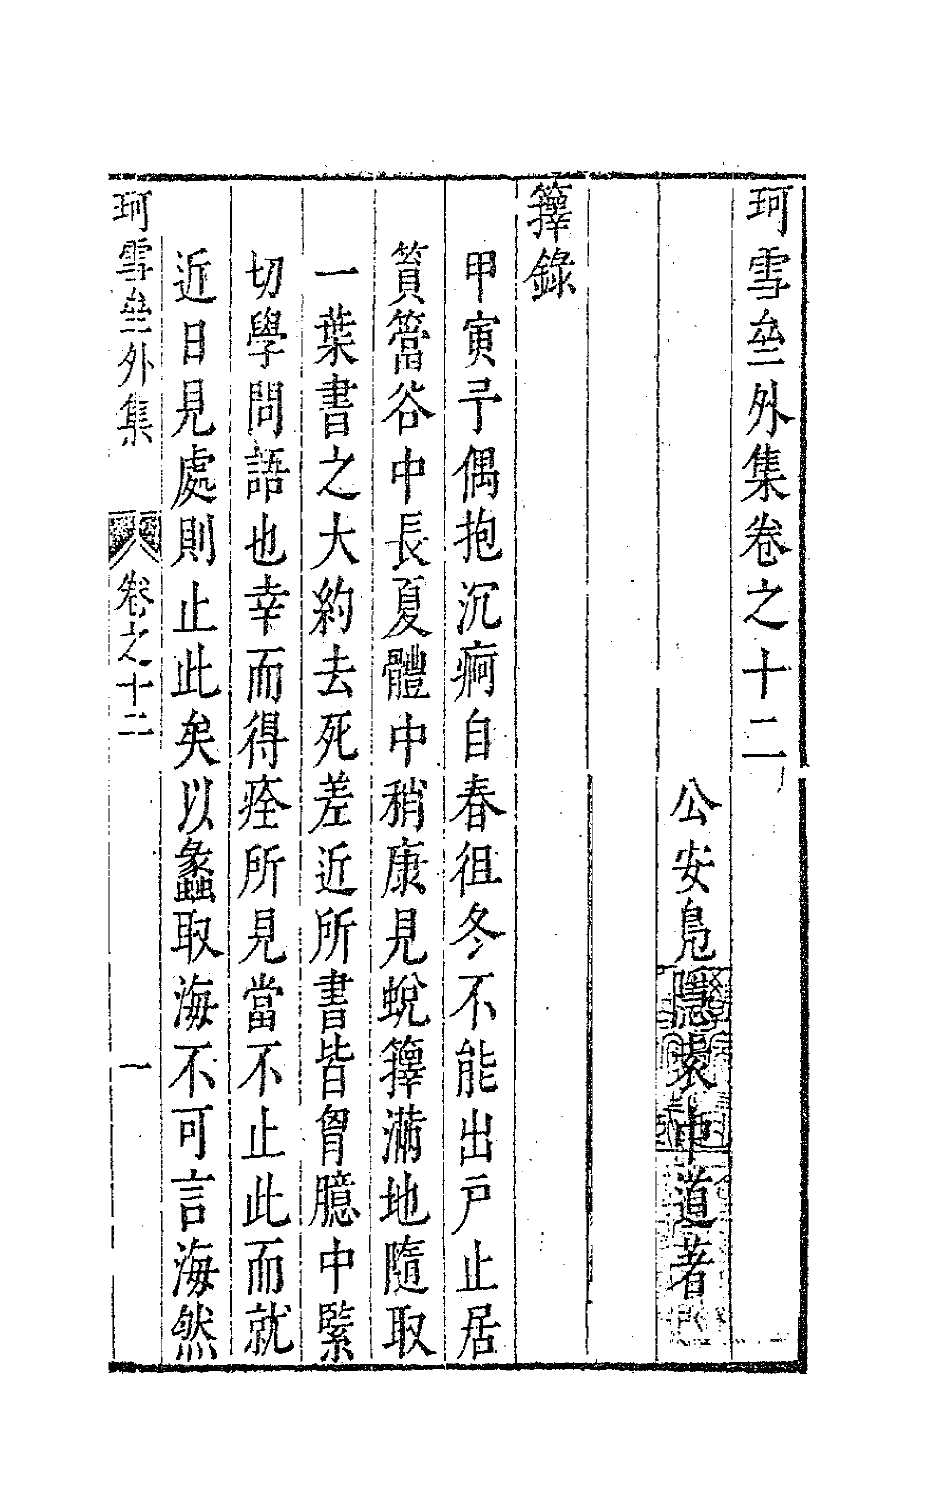 珂雪坐外集卷之十二
公安鳬隱袁中道著
籜錄
甲寅予偶抱沉痾自春徂冬不能出戸止居
篔簹谷中長夏體中稍康見蛻籜滿地隨取
一葉書之大約去死差近所書皆胷臆中緊
切學問語也幸而得痊所見當不止此而就
近日見處則止此矣以蠡取海不可言海然
珂雪坐外集
卷之十二
一